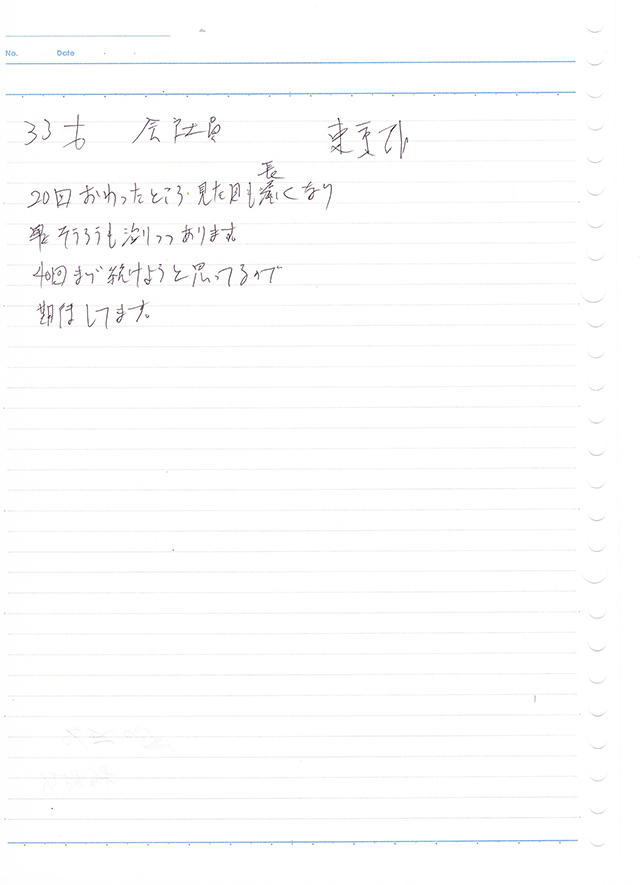 No.
Date
33才 会社員 東京都
20回おわったところ、見た目も長くなり
早そうろうも治りつつあります。
40回まで続けようと思ってるので
期待してます。